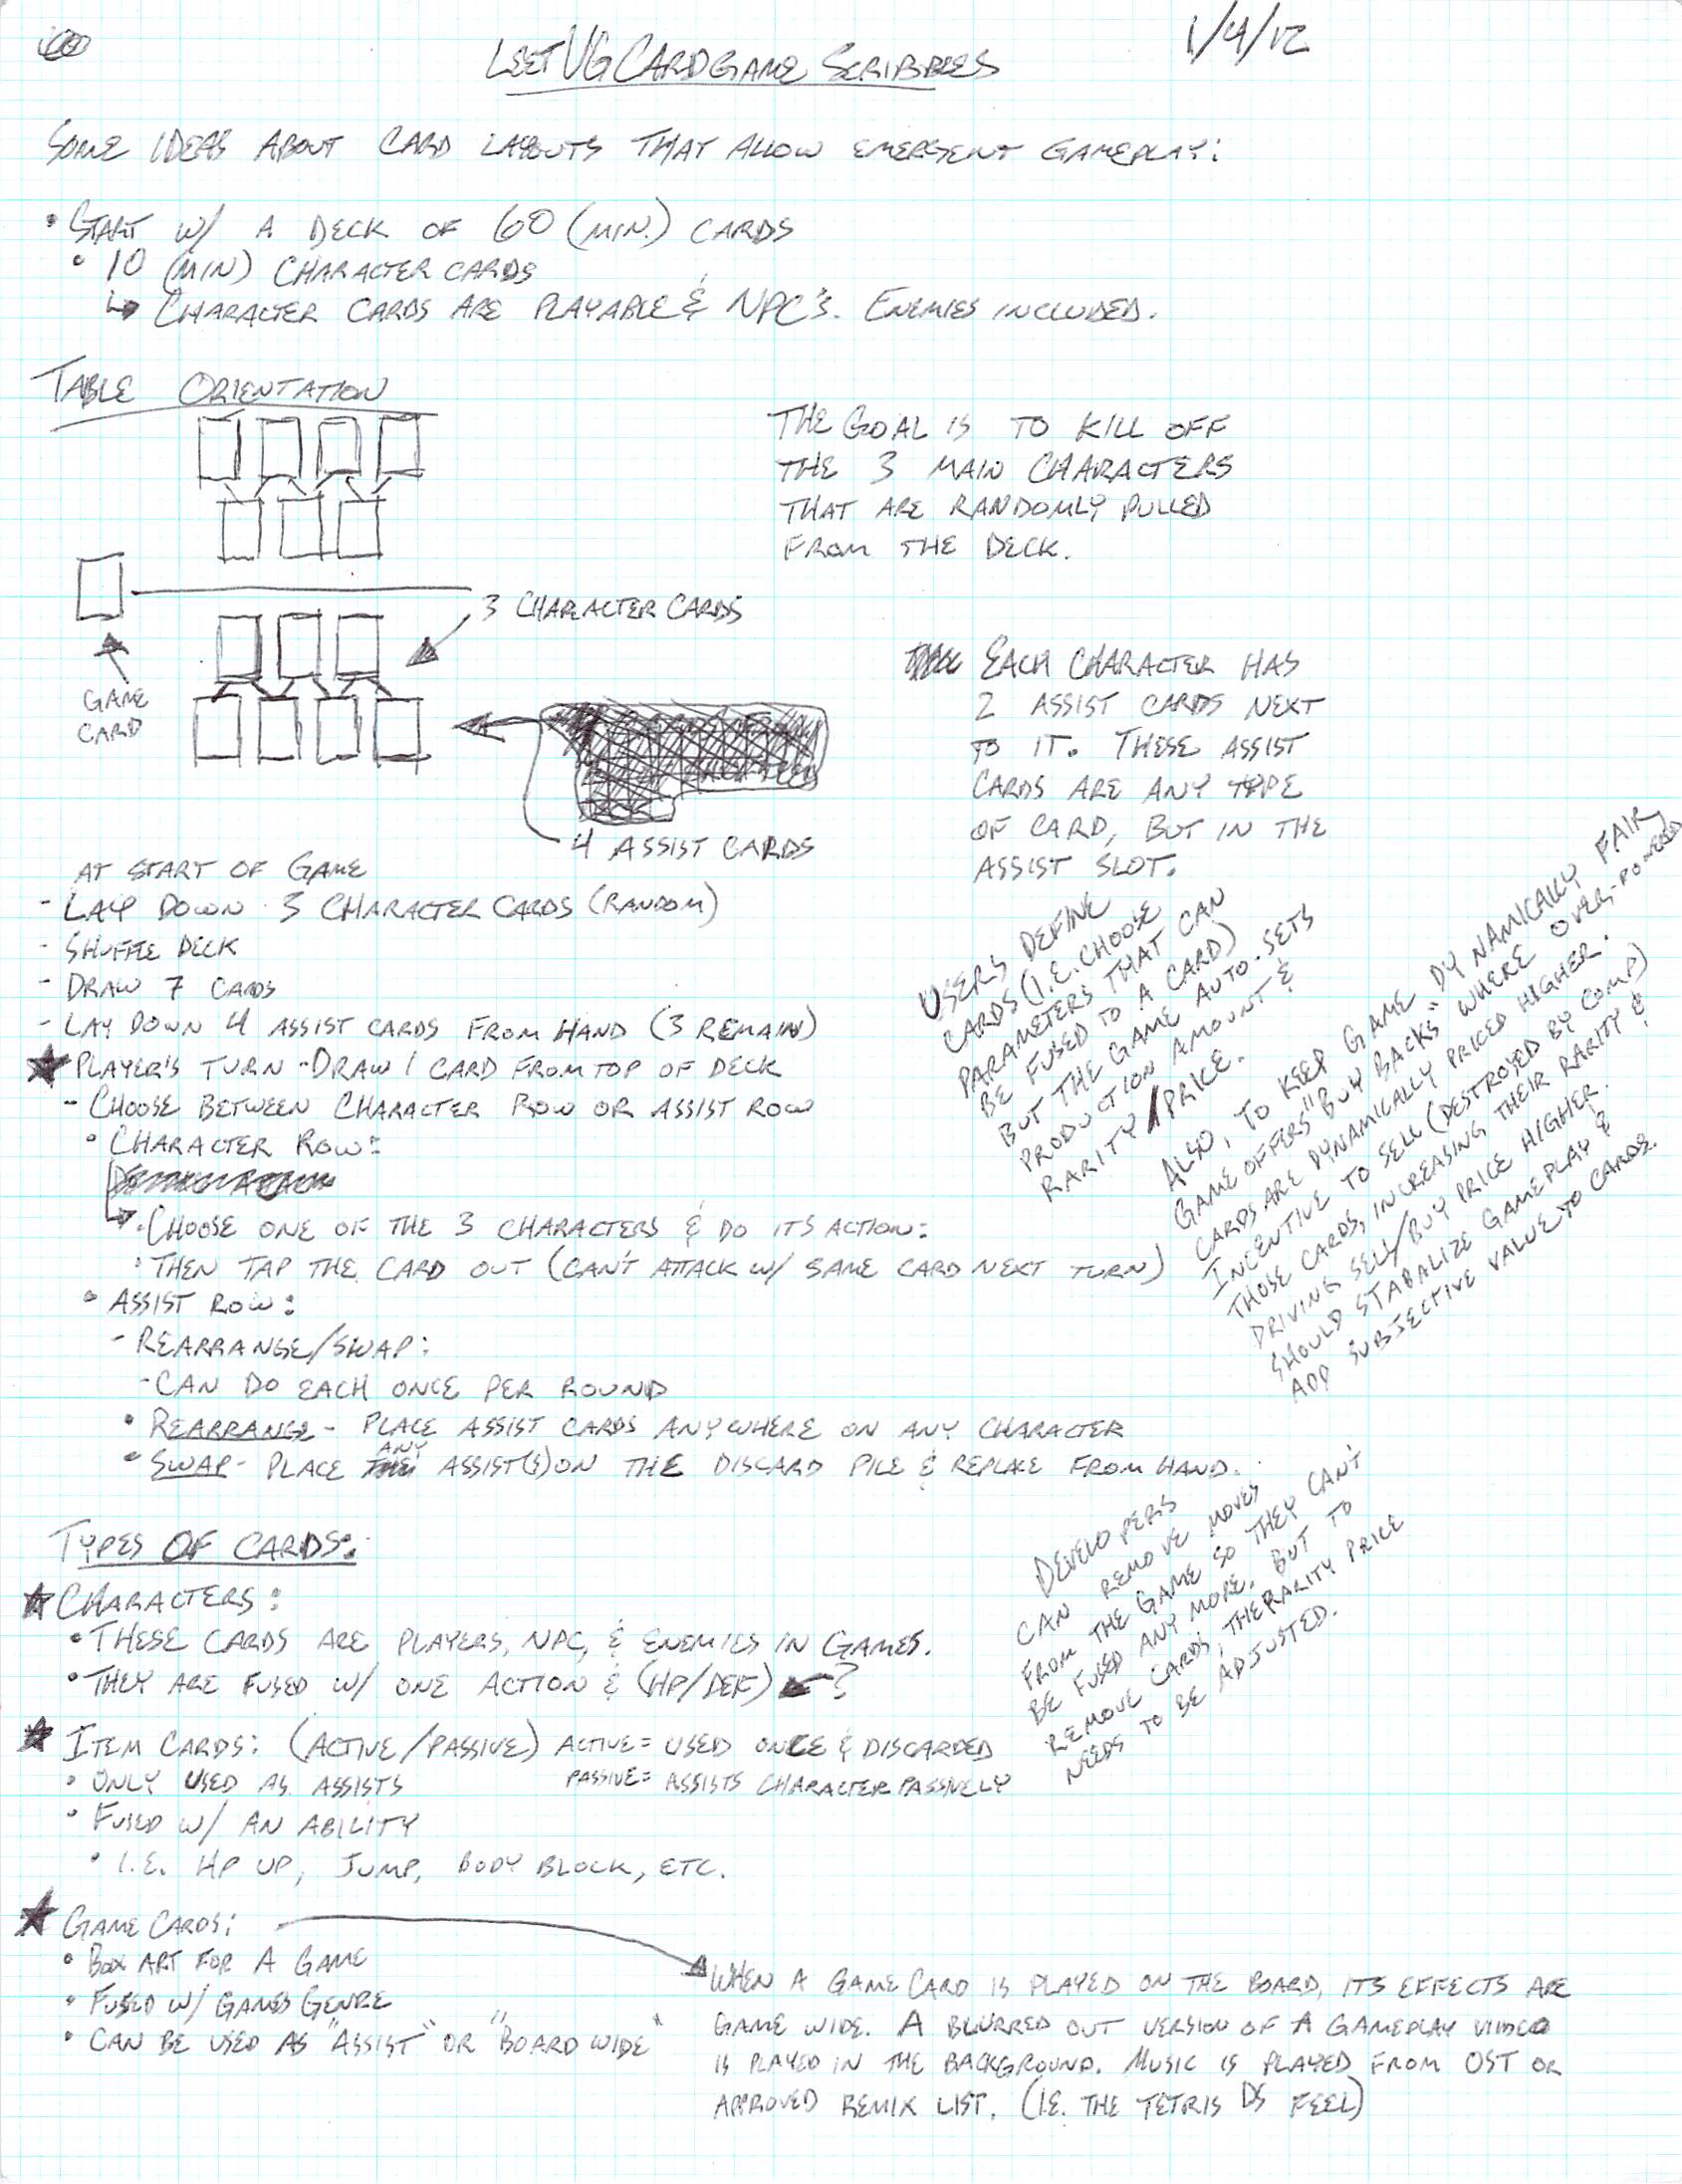 LEET VG CARDGAME SCRIBBLES
1/4/12
SOME IDEAS ABOUT CARD LAYOUTS THAT ALLOW EMERGENT GAMEPLAY:
• START W/ A DECK OF 60 (MIN.) CARDS
• 10 (MIN) CHARACTER CARDS
↳ CHARACTER CARDS ARE PLAYABLE & NPC'S. ENEMIES INCLUDED.
TABLE ORIENTATION
THE GOAL IS TO KILL OFF
THE 3 MAIN CHARACTERS
THAT ARE RANDOMLY PULLED
FROM THE DECK.
3 CHARACTER CARDS
GAME
CARD
4 ASSIST CARDS
EACH CHARACTER HAS
2 ASSIST CARDS NEXT
TO IT. THESE ASSIST
CARDS ARE ANY TYPE
OF CARD, BUT IN THE
ASSIST SLOT.
AT START OF GAME
- LAY DOWN 3 CHARACTER CARDS (RANDOM)
- SHUFFLE DECK
- DRAW 7 CARDS
- LAY DOWN 4 ASSIST CARDS FROM HAND (3 REMAIN)
★ PLAYER'S TURN - DRAW 1 CARD FROM TOP OF DECK
- CHOOSE BETWEEN CHARACTER ROW OR ASSIST ROW
• CHARACTER ROW:
↳ • CHOOSE ONE OF THE 3 CHARACTERS & DO ITS ACTION:
• THEN TAP THE CARD OUT (CAN'T ATTACK W/ SAME CARD NEXT TURN)
• ASSIST ROW:
- REARRANGE/SWAP:
- CAN DO EACH ONCE PER ROUND
• REARRANGE - PLACE ASSIST CARDS ANYWHERE ON ANY CHARACTER
• SWAP - PLACE ANY ASSIST(S) ON THE DISCARD PILE & REPLACE FROM HAND.
USERS DEFINE
CARDS (I.E. CHOOSE
PARAMETERS THAT CAN
BE FUSED TO A CARD)
BUT THE GAME AUTO-SETS
PRODUCTION AMOUNT &
RARITY/PRICE.
ALSO, TO KEEP GAME DYNAMICALLY FAIR,
GAME OFFERS "BUY BACKS" WHERE OVER-POWERED
CARDS ARE DYNAMICALLY PRICED HIGHER.
INCENTIVE TO SELL (DESTROYED BY COMP)
THOSE CARDS, INCREASING THEIR RARITY &
DRIVING SELL/BUY PRICE HIGHER.
SHOULD STABALIZE GAMEPLAY &
ADD SUBJECTIVE VALUE TO CARDS.
TYPES OF CARDS:
★ CHARACTERS:
• THESE CARDS ARE PLAYERS, NPC, & ENEMIES IN GAMES.
• THEY ARE FUSED W/ ONE ACTION & (HP/DEF) ← ?
★ ITEM CARDS: (ACTIVE/PASSIVE) ACTIVE = USED ONCE & DISCARDED
• ONLY USED AS ASSISTS PASSIVE = ASSISTS CHARACTER PASSIVELY
• FUSED W/ AN ABILITY
• I.E. HP UP, JUMP, BODY BLOCK, ETC.
DEVELOPERS
CAN REMOVE MOVES
FROM THE GAME SO THEY CAN'T
BE FUSED ANY MORE. BUT TO
REMOVE CARDS, THE RARITY PRICE
NEEDS TO BE ADJUSTED.
★ GAME CARDS:
• BOX ART FOR A GAME
• FUSED W/ GAMES GENRE
• CAN BE USED AS "ASSIST" OR "BOARD WIDE"
WHEN A GAME CARD IS PLAYED ON THE BOARD, ITS EFFECTS ARE
GAME WIDE. A BLURRED OUT VERSION OF A GAMEPLAY VIDEO
IS PLAYED IN THE BACKGROUND. MUSIC IS PLAYED FROM OST OR
APPROVED REMIX LIST. (I.E. THE TETRIS DS FEEL)